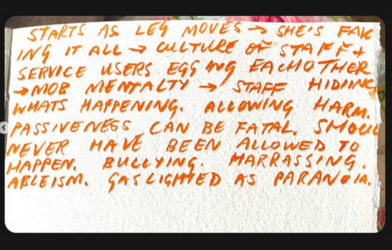 STARTS AS LEG MOVES → SHE'S FAK
ING IT ALL → CULTURE OF STAFF +
SERVICE USERS EGGING EACHOTHER
→ MOB MENTALTY → STAFF HIDING
WHATS HAPPENING. ALLOWING HARM.
PASSIVENESS CAN BE FATAL. SHOULD
NEVER HAVE BEEN ALLOWED TO
HAPPEN. BULLYING. HARRASSING.
ABLEISM. GASLIGHTED AS PARANOIA.